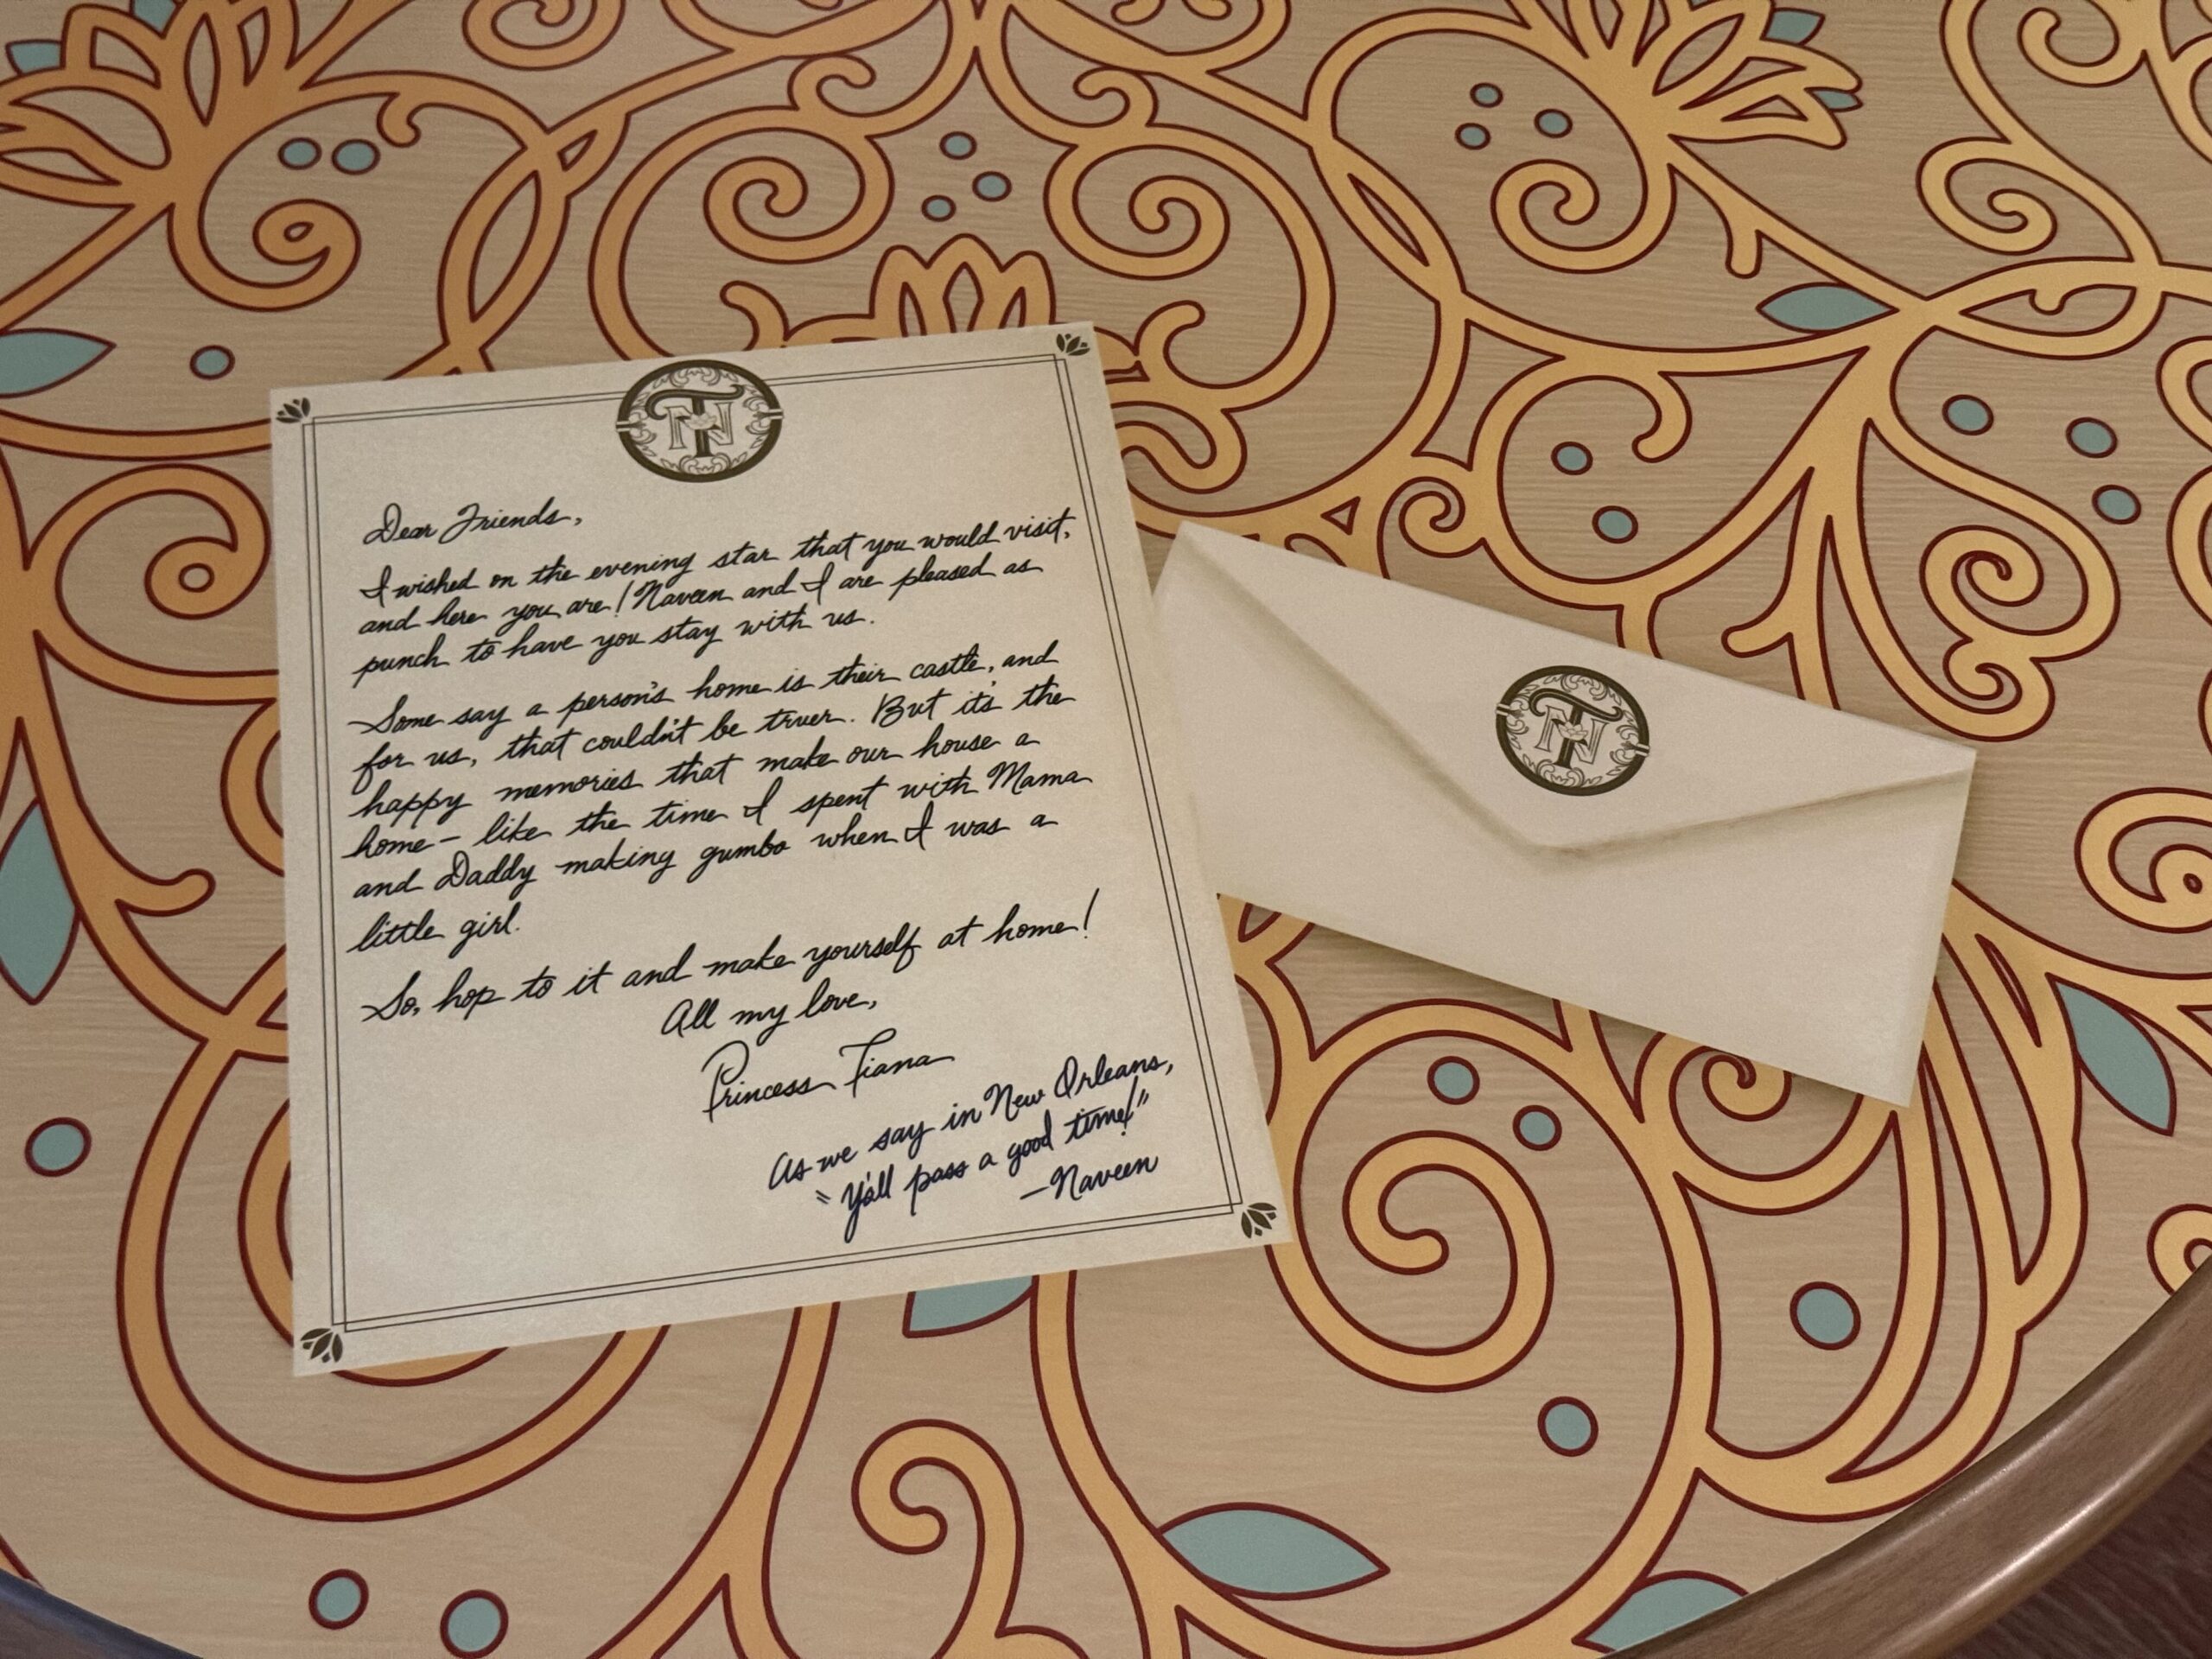 TN
Dear Friends,
I wished on the evening star that you would visit,
and here you are! Naveen and I are pleased as
punch to have you stay with us.
Some say a person's home is their castle, and
for us, that couldn't be truer. But it's the
happy memories that make our house a
home- like the time I spent with Mama
and Daddy making gumbo when I was a
little girl.
So, hop to it and make yourself at home!
All my love,
Princess Tiana
As we say in New Orleans,
"Y'all pass a good time!"
-Naveen
TN